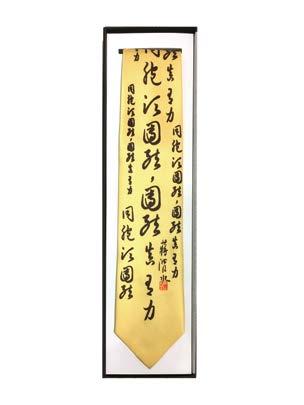 結真有力
同胞須團結，團結真有力
蔣渭水
同胞須團結，團結真有力
力
同胞須團結，團結真有力
同胞須團結